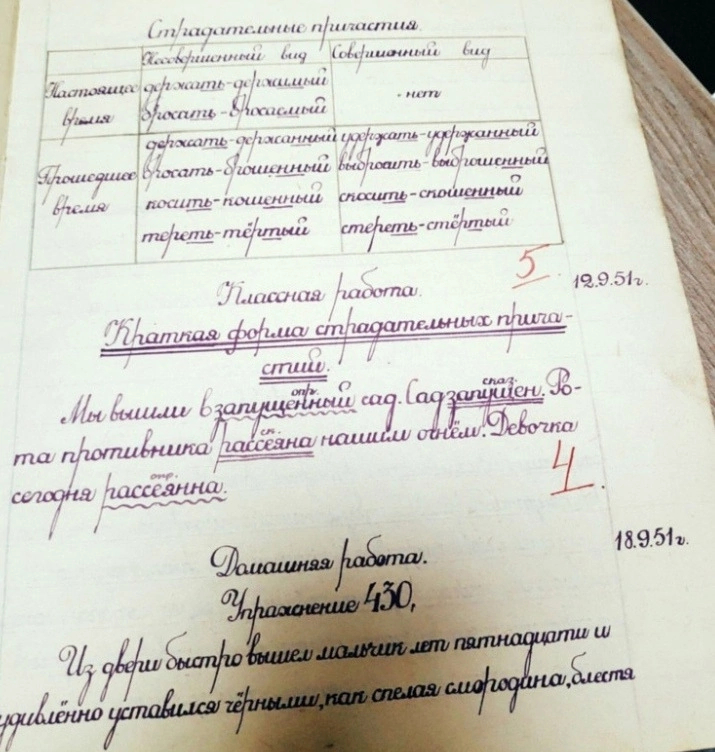 Страдательные причастия.
Несовершенный вид Совершенный вид
Настоящее время держать-держимый - нет
бросать-бросаемый
Прошедшее время держать-держанный удержать-удержанный
бросать-брошенный выбросить-выброшенный
косить-кошенный скосить-скошенный
тереть-тёртый стереть-стёртый
5
12.9.51г.
Классная работа.
Краткая форма страдательных прича-
стий.
опр. сказ.
Мы вышли в запущенный сад. Сад запущен. Ро-
ск.
та противника рассеяна нашим огнём. Девочка
опр.
сегодня рассеянна.
4
18.9.51г.
Домашняя работа.
Упражнение 430,
Из двери быстро вышел мальчик лет пятнадцати и
удивлённо уставился чёрными, как спелая смородина, блестя